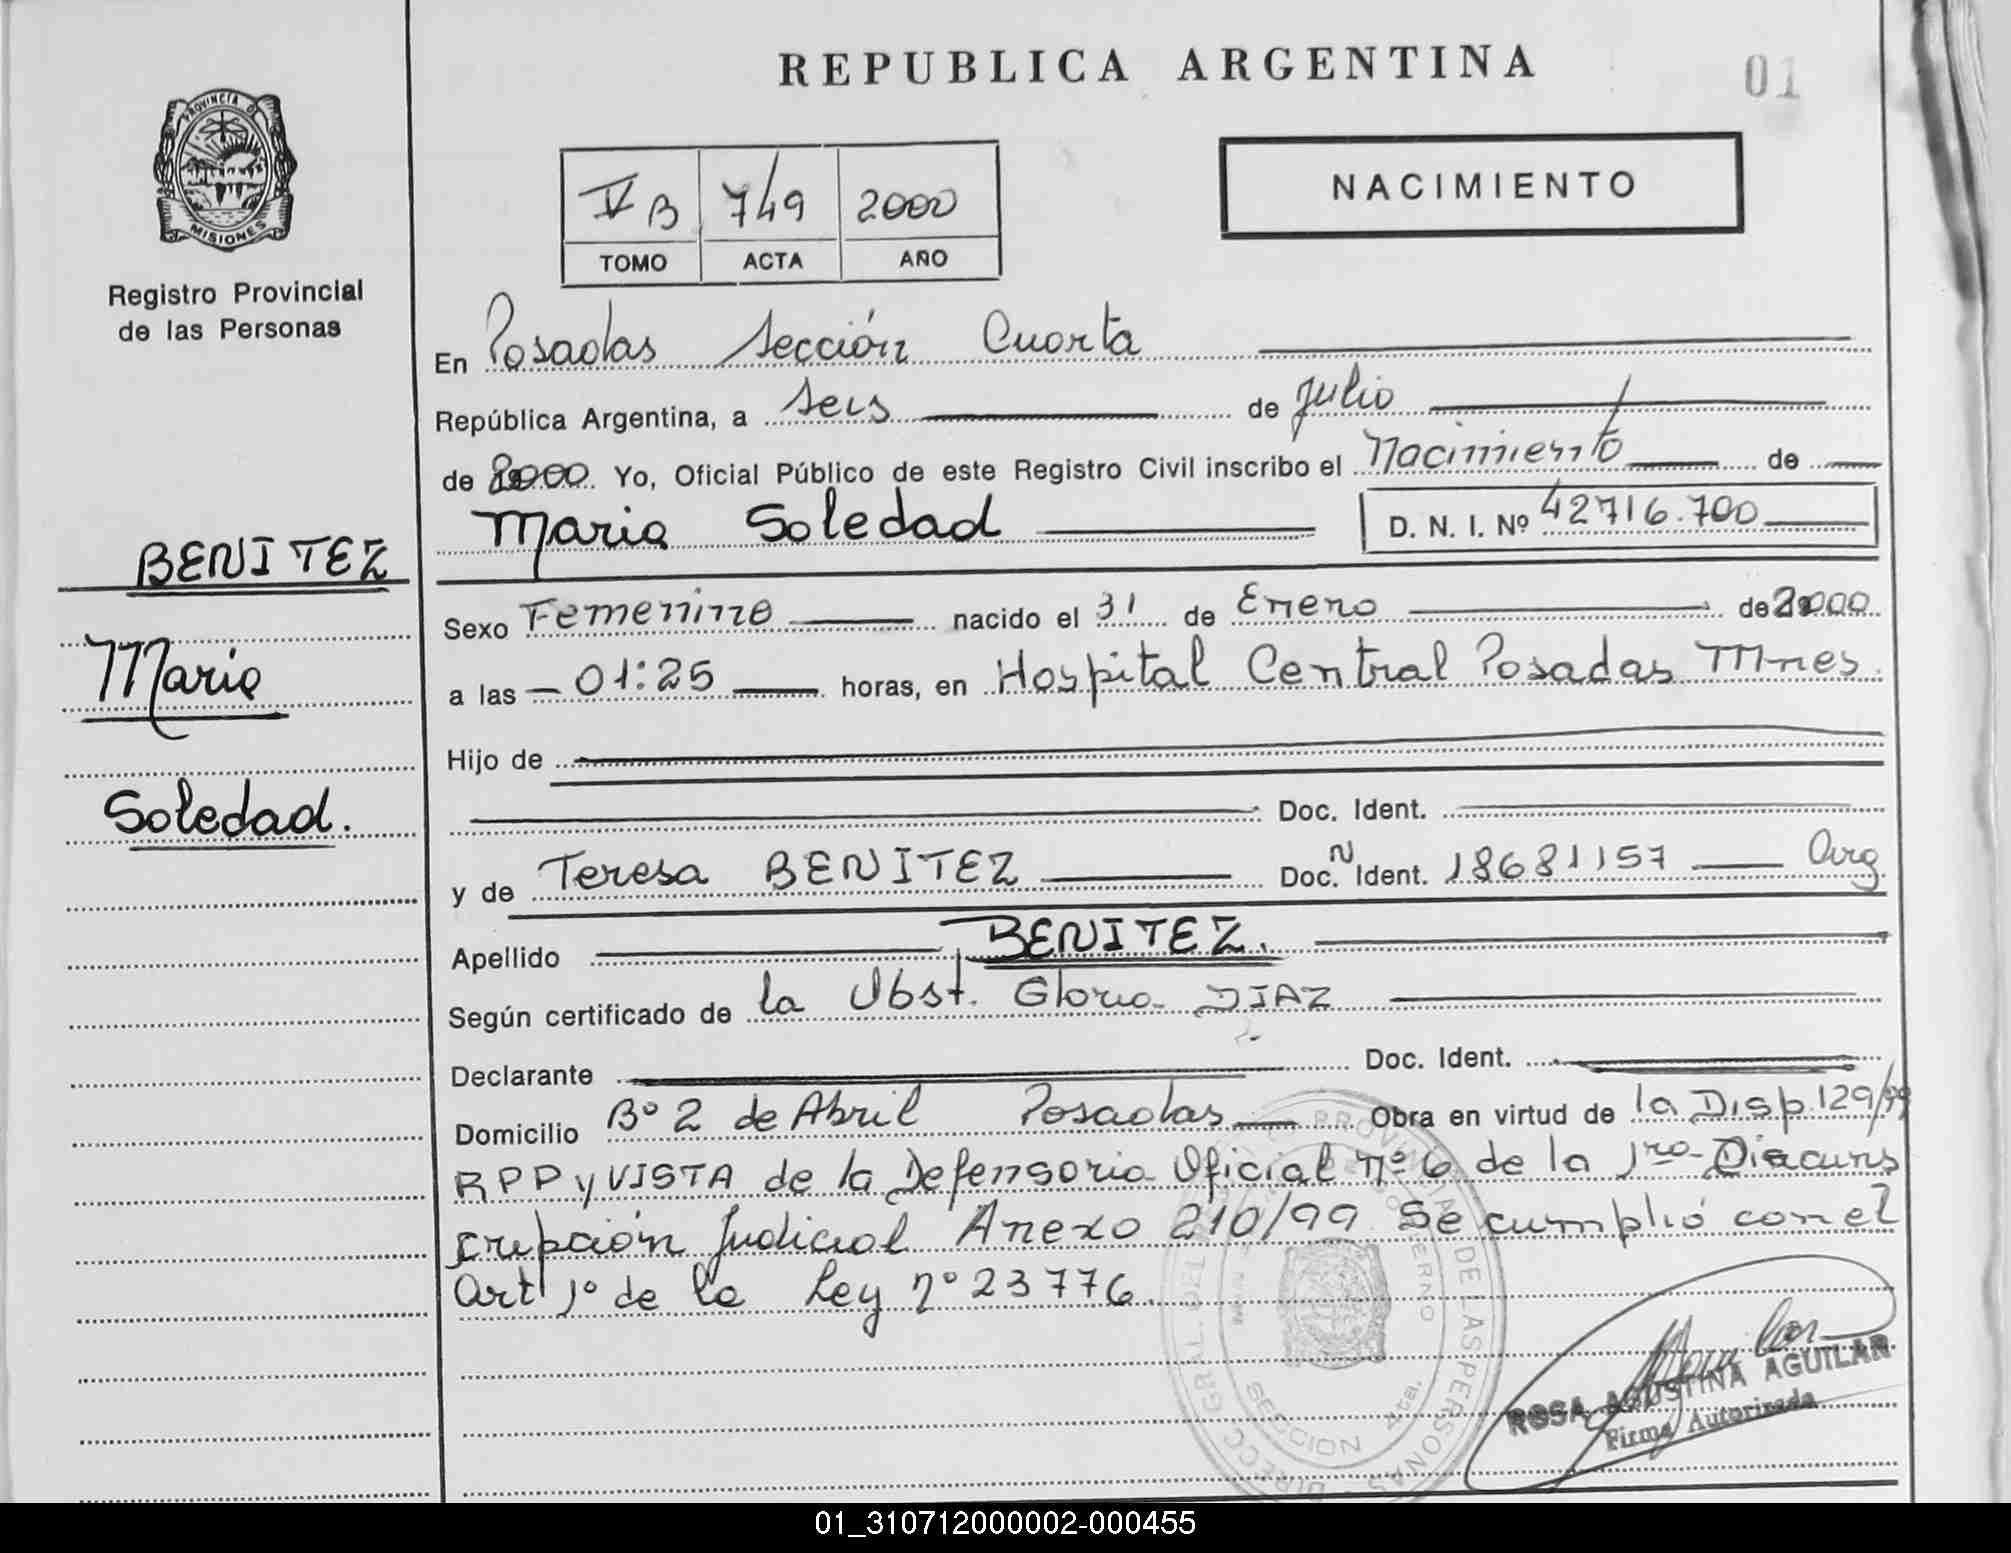 REPUBLICA ARGENTINA
01
PROVINCIA DE
MISIONES
Registro Provincial
de las Personas
V B 749 2000
TOMO ACTA AÑO
NACIMIENTO
En Posadas Sección Cuarta
República Argentina, a Seis de Julio
de 2000 Yo, Oficial Público de este Registro Civil inscribo el Nacimiento de
Maria Soledad D. N. I. Nº 42716.700
BENITEZ
Maria
Soledad.
Sexo Femenino nacido el 31 de Enero de 2000
a las 01:25 horas, en Hospital Central Posadas Mnes.
Hijo de
Doc. Ident.
y de Teresa BENITEZ Doc. N Ident. 18681157 Arg
Apellido BENITEZ.
Según certificado de la Obst. Gloria DIAZ
Declarante Doc. Ident.
Domicilio Bº 2 de Abril Posadas Obra en virtud de la Disp 129/99
RPP y VISTA de la Defensoria Oficial nº 6 de la 1ra Circuns
cripción Judicial Anexo 210/99 Se cumplió con el
Art 1º de la Ley nº 23776.
DIRECC GRAL. DEL PROVINCIAL DE LAS PERSONAS
GOBIERNO
SECCION 4ta.
ROSA AGUSTINA AGUILAR
Firma Autorizada
01_310712000002-000455